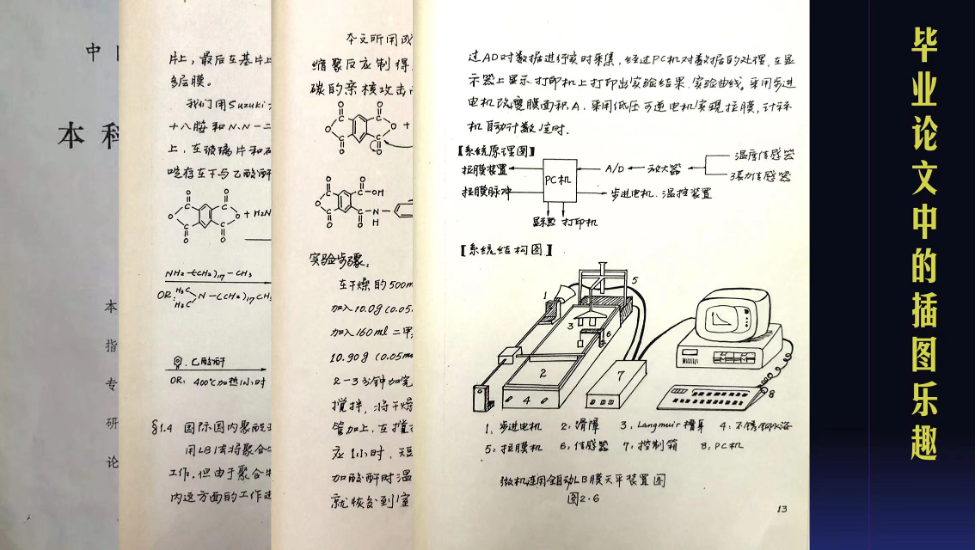 中
本科
本
指
专
研
论
片上,最后在基片上
多层膜。
我们用Suzuki
十八胺和N.N-二
上,在玻璃片和
O
C
+ H₂N
NH₂-(CH₂)₁₇-CH₃
OR: H₃C
H₃C N-(CH₂)₁₇CH₃
①. 乙酸酐
OR: 400℃加热1小时
§1.4 国际国内聚酰亚
用LB法将聚合
工作,但由于聚合
内这方面的工作
本文所用
缩聚反应制得
碳的亲核攻击
O
C
+
C-OH
C-N
H
实验步骤:
在干燥的500m
加入10.0g(0.05
加入160ml二甲
10.90g(0.05m
2-3分钟加完
搅拌,将干燥
管加上,在搅
应1小时,
加酸酐时温
就恢复到室
过AD对数据进行实时采集,经过PC机对数据的处理,在显
示器上显示,打印机上打印出实验结果,实验曲线。采用步进
电机改变膜面积A,采用低压可逆电机实现拉膜,计算
机自动计数,定时.
【系统原理图】
拉膜装置
PC机
A/D
放大器
温度传感器
张力传感器
拉膜脉冲
步进电机.温控装置
显示器 打印机
【系统结构图】
1 2 3 4 5 6 7 8
1、步进电机 2、滑障 3、Langmuir槽身 4、不锈钢水浴
5、拉膜机 6、传感器 7、控制箱 8、PC机
微机连用全自动LB膜天平装置图
图2·6
13
毕业论文中的插图乐趣